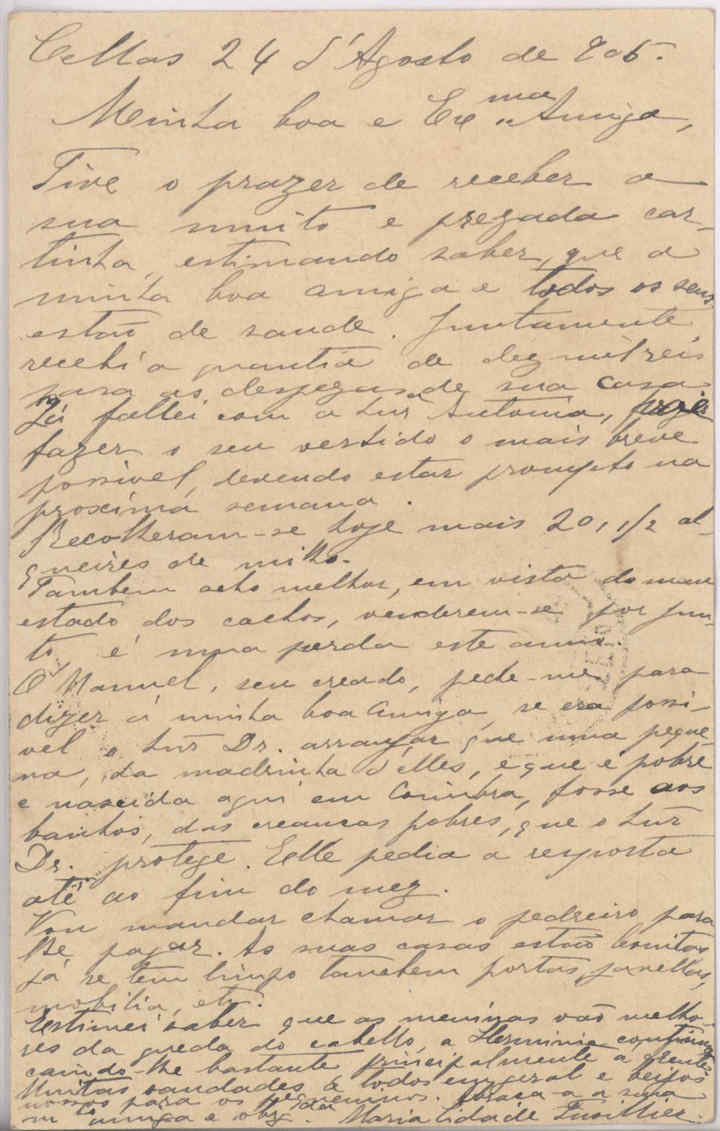 Cellas 24 d'Agosto de 905.
Minha boa e Ex.ma Amiga,
Tive o prazer de receber a
sua muito e prezada car-
tinha, estimando saber, que a
minha boa amiga e todos os seus
estão de saude. Juntamente
recebi a quantia de dez mil reis
para as despezas de sua casa
Já fallei com a Snrª Antonia,
fazer o seu vestido o mais breve
possivel, devendo estar prompto na
proxima semana.
Recolheram-se hoje mais 20, 1/2 al-
queires de milho.
Tambem acho melhor, em vista do mau
estado dos cachos, venderem-se por jun-
to, é uma perda este anno.
O Manuel, seu creado, pede-me para
dizer á minha boa Amiga, se era possi-
vel o Snr. Dr. arranjar que uma peque-
na, da madrinha d'elles, e que é pobre
e nascida aqui em Coimbra, fosse aos
banhos, das creanças pobres, que o Snr.
Dr. protege. Elle pedia a resposta
até ao fim do mez.
Vou mandar chamar o pedreiro para
lhe pagar. As suas casas estão bonitas,
já se tem limpo tambem portas, janellas,
mobilia, etc.
Estimei saber que as meninas vão melho-
res da queda do cabello, a Herminia continua
caindo-lhe bastante principalmente a frente
Muitas saudades a todos em geral e beijos
nossos para os pequeninos. Abraça-a a sua
m.to amiga e obg.da Maria